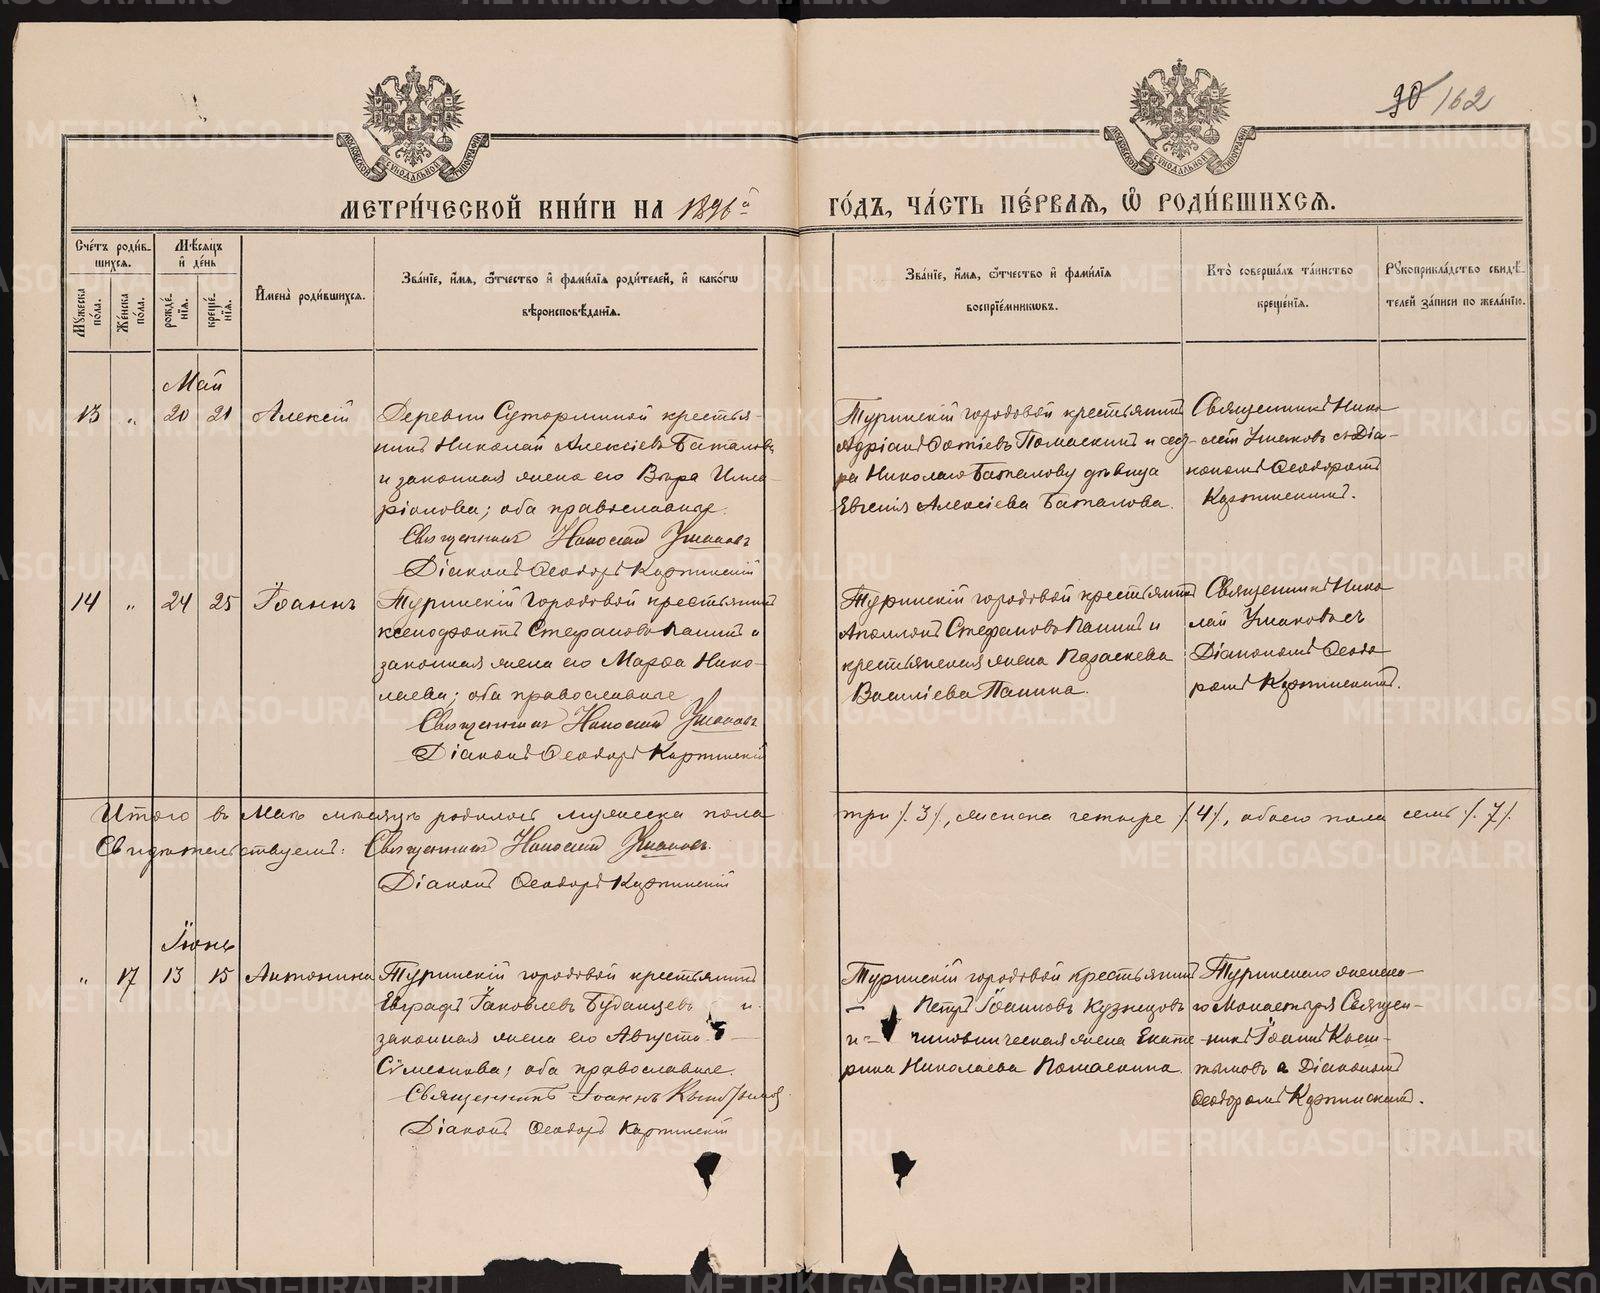 90/162
МОСКОВСКОЙ СѴНОДАЛЬНОЙ ТИПОГРАФІИ
МОСКОВСКОЙ СѴНОДАЛЬНОЙ ТИПОГРАФІИ
МЕТРИ́ЧЕСКОЙ КНИ́ГИ НА 1896й ГО́ДЪ, ЧА́СТЬ ПЕ́РВАѦ, Ѡ҆ РОДИ́ВШИХСѦ.
Сче́тъ роди́вшихсѧ.
Мꙋ́жеска по́ла.
Же́нска по́ла.
Мѣ́сѧцъ и҆ де́нь
рожде́нїѧ.
креще́нїѧ.
И҆мена̀ роди́вшихсѧ.
Зва́нїе, и҆́мѧ, ѻ҆́тчество и҆ фами́лїѧ роди́телей, и҆ како́гѡ
вѣроисповѣ́данїѧ.
Зва́нїе, и҆́мѧ, ѻ҆́тчество и҆ фами́лїѧ
воспрїе́мникѡвъ.
Кто̀ соверша́лъ та́инство
креще́нїѧ.
Рꙋкоприкла́дство свидѣ́телей за́писи по жела́нїю.
Май
13 „ 20 21 Алексій
Деревни Суториминой крестья-
нинъ Николай Алексіевъ Баталовъ
и законная жена его Вѣра Илла-
ріонова; оба православные.
Священникъ Николай Ушаковъ
Діаконъ Ѳеодоръ Карпинскій
Туринскій городовой крестьянинъ
Адріанъ Фотіевъ Помаскинъ и сест-
ра Николаю Баталову дѣвица
Евгенія Алексіева Баталова.
Священникъ Нико
лай Ушаковъ съ Діа-
кономъ Ѳеодоромъ
Карпинскимъ.
14 „ 24 25 Іоаннъ
Туринскій городовой крестьянинъ
Ксенофонтъ Стефановъ Панинъ и
законная жена его Марѳа Нико-
лаева; оба православные
Священникъ Николай Ушаковъ
Діаконъ Ѳеодоръ Карпинскій
Туринскій городовой крестьянинъ
Аполлонъ Стефановъ Панинъ и
крестьянская жена Параскева
Василіева Панина.
Священникъ Нико
лай Ушаковъ съ
Діакономъ Ѳеодо
ромъ Карпинскимъ.
Итого въ Маѣ мѣсяцѣ родилось мужеска пола три /.3/., женска четыре /.4/., обоего пола семь /.7/.
Свидѣтельствуемъ: Священникъ Николай Ушаковъ.
Діаконъ Ѳеодоръ Карпинскій
Іюнь
„ 17 13 15 Антонина
Туринскій городовой крестьянинъ
Евграфъ Іаковлевъ Буданцевъ и
законная жена его Августа
Сѵмеонова; оба православные.
Священникъ Іоаннъ
Діаконъ Ѳеодоръ Карпинскій
Туринскій городовой крестьянинъ
Петръ Іоанновъ Кузнецовъ
и чиновническая жена Екате
рина Николаева Помаскина.
Туринскаго женска-
го Монастыря Священ-
никъ Іоаннъ
съ Діакономъ
Ѳеодоромъ Карпинскимъ.
METRIKI.GASO-URAL.RU